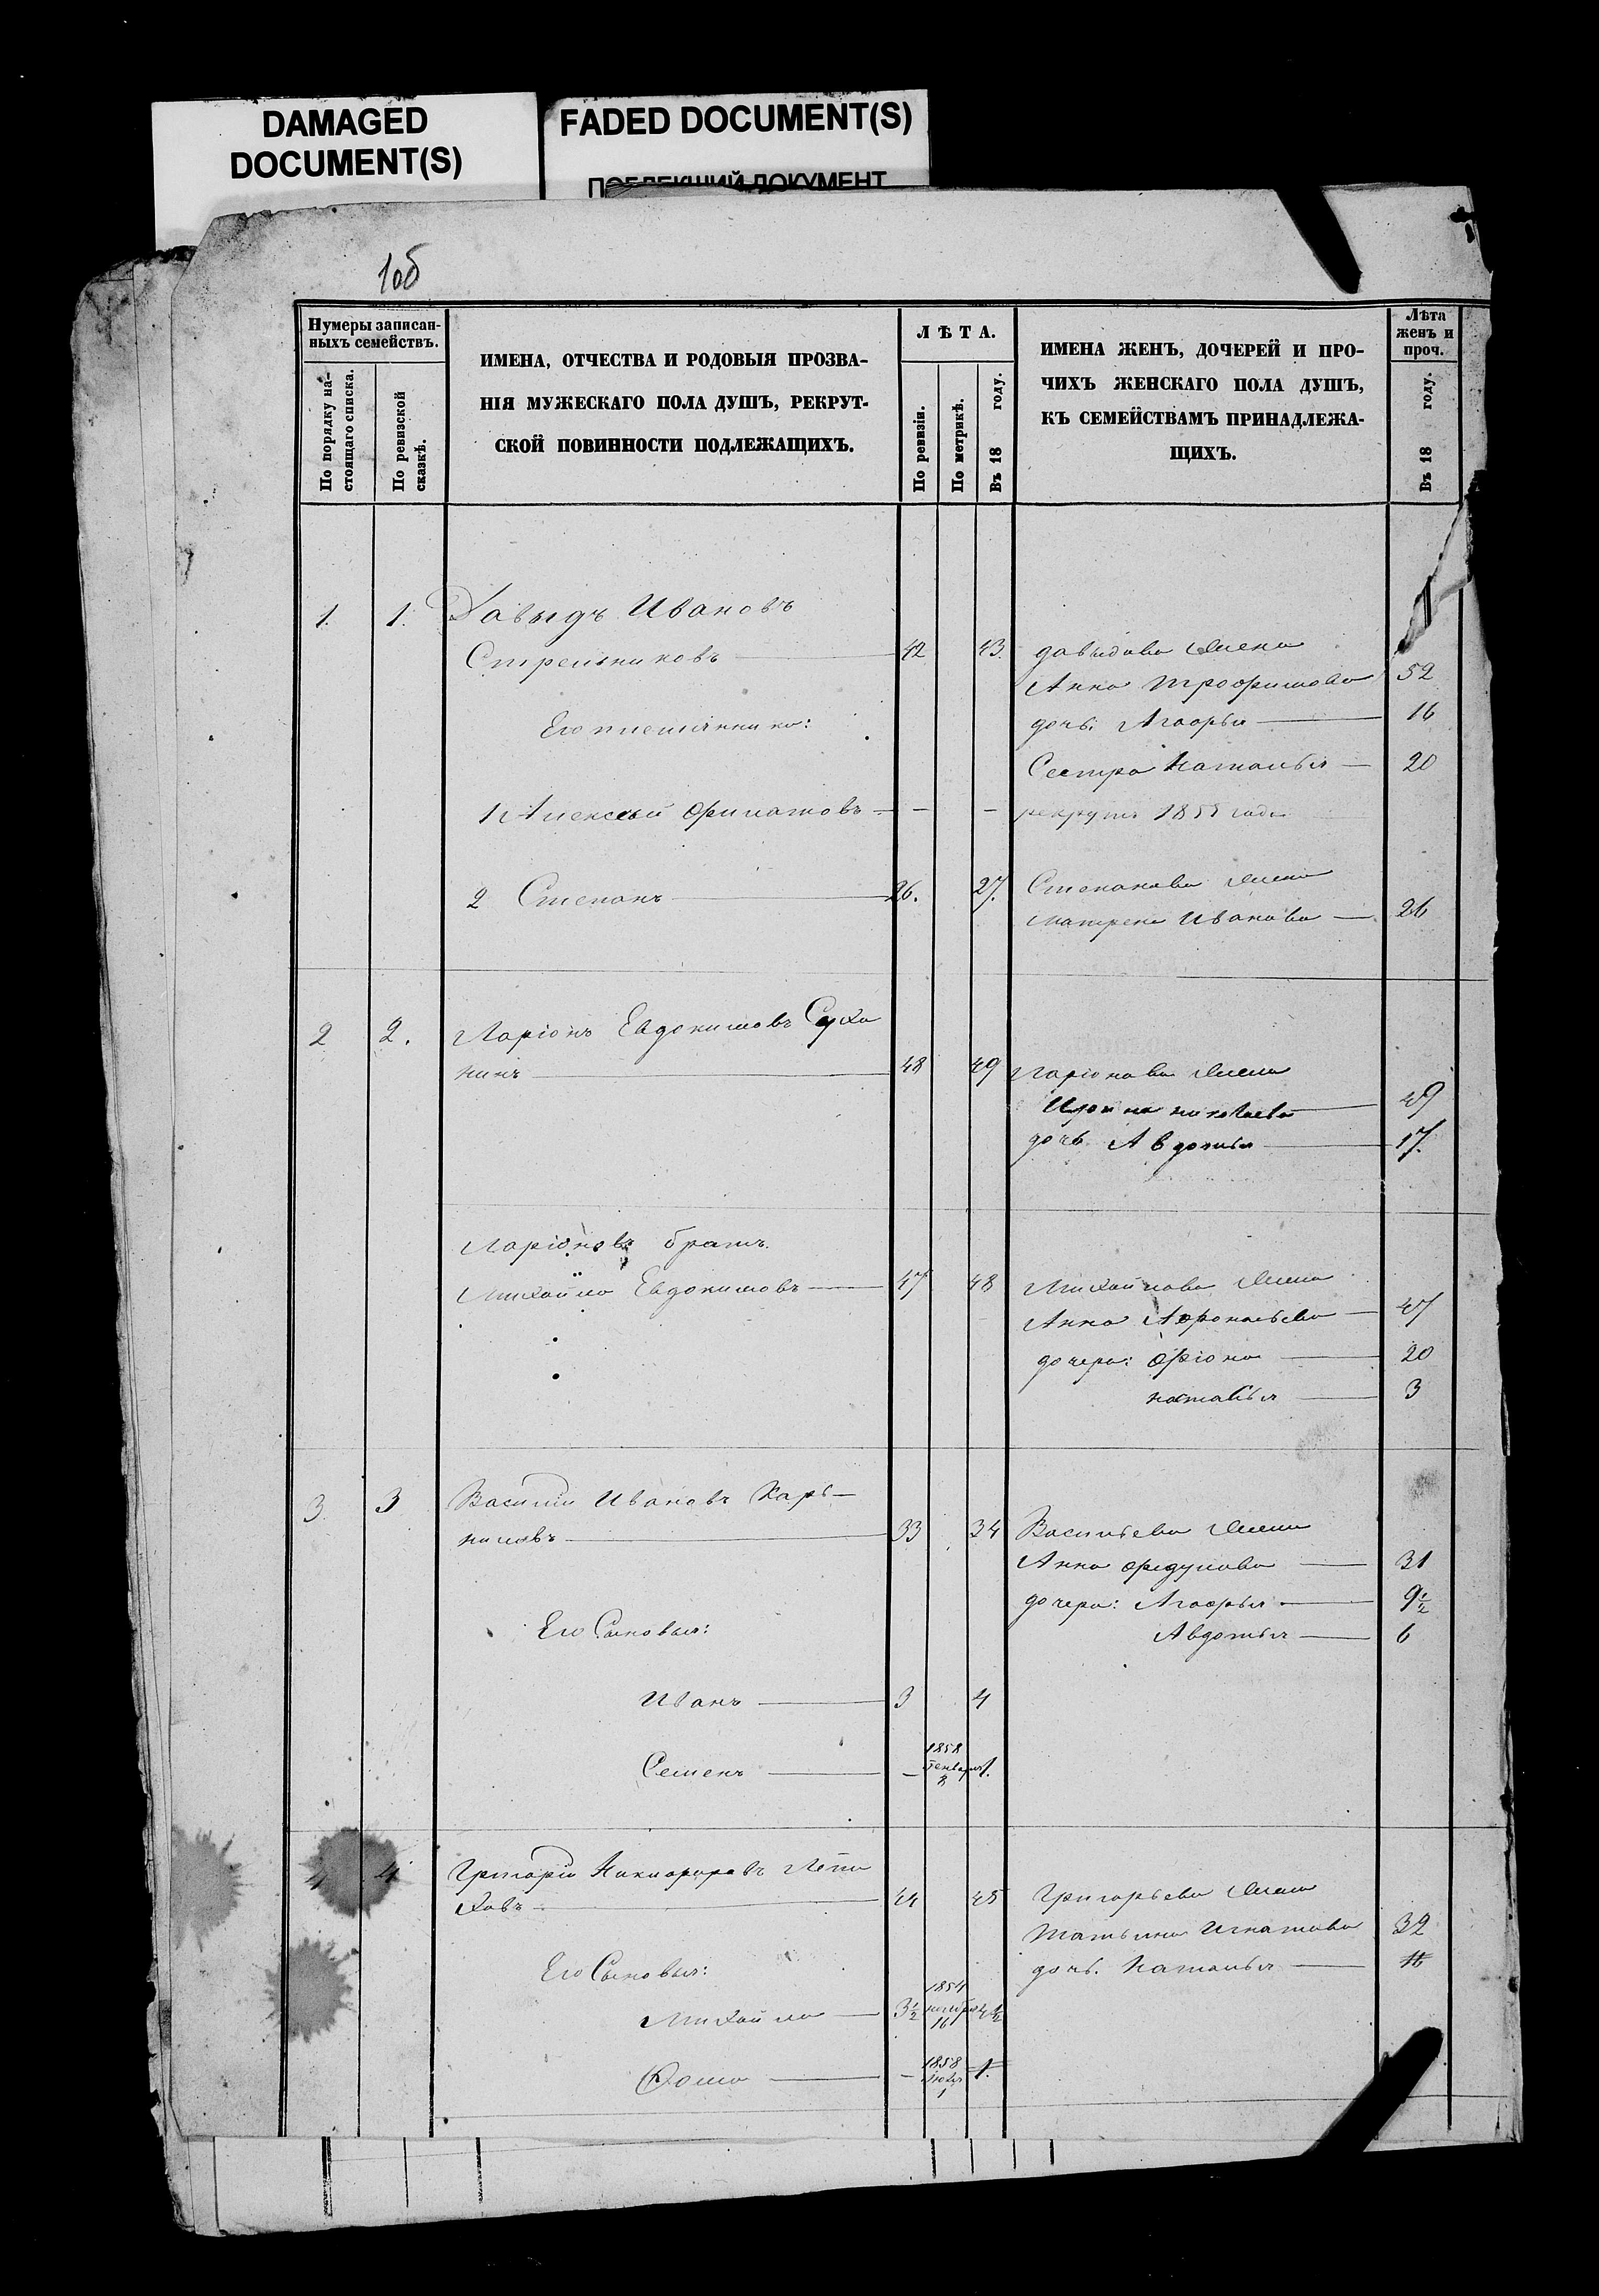 DAMAGED
DOCUMENT(S)
FADED DOCUMENT(S)
ПОБЛЕКШИЙ ДОКУМЕНТ
1об
Нумеры записан-
ныхъ семействъ.
По порядку на-
стоящаго списка.
По ревизской
сказкѣ.
ИМЕНА, ОТЧЕСТВА И РОДОВЫЯ ПРОЗВА-
НІЯ МУЖЕСКАГО ПОЛА ДУШЪ, РЕКРУТ-
СКОЙ ПОВИННОСТИ ПОДЛЕЖАЩИХЪ.
ЛѢТА.
По ревизіи.
По метрикѣ.
Въ 18 году.
ИМЕНА ЖЕНЪ, ДОЧЕРЕЙ И ПРО-
ЧИХЪ ЖЕНСКАГО ПОЛА ДУШЪ,
КЪ СЕМЕЙСТВАМЪ ПРИНАДЛЕЖА-
ЩИХЪ.
Лѣта
женъ и
проч.
Въ 18 году.
1. 1. Давыдъ Ивановъ
Стрельниковъ 42 43. давыдова жена
Анна Трофимова 52
Его племянники: дочь: Агафья 16
Сестра Наталья 20
1 Алексей Филатовъ - - рекрутъ 1855 года
2 Степанъ 26. 27. Степанова жена
Матрена Иванова 26
2 2. Ларіонъ Евдокимовъ Суха
нинъ 48 49 Ларіонова жена
Ирина николаева 49
дочь Авдотья 17.
Ларіоновъ братъ
Михайло Евдокимовъ 47 48 Михайлова жена
Анна Афонасьева 47
дочери: Фіона 20
наталья 3
3 3 Василій Ивановъ Карь-
ниловъ 33 34 Васильева жена
Анна Федулова 31
дочери: Агафья 9½
Его Сыновья: Авдотья 6
Иванъ 3 4
Семенъ - 1858 Генваря 3 1.
4 4 Григорій Никифоровъ Лепи
ховъ 44 45 Григорьева жена
Татьяна Игнатова 32
Его Сыновья: дочь. Наталья 16
Михайло 3½ 1854 ноября 16 4½
Фома - 1858 1 1.